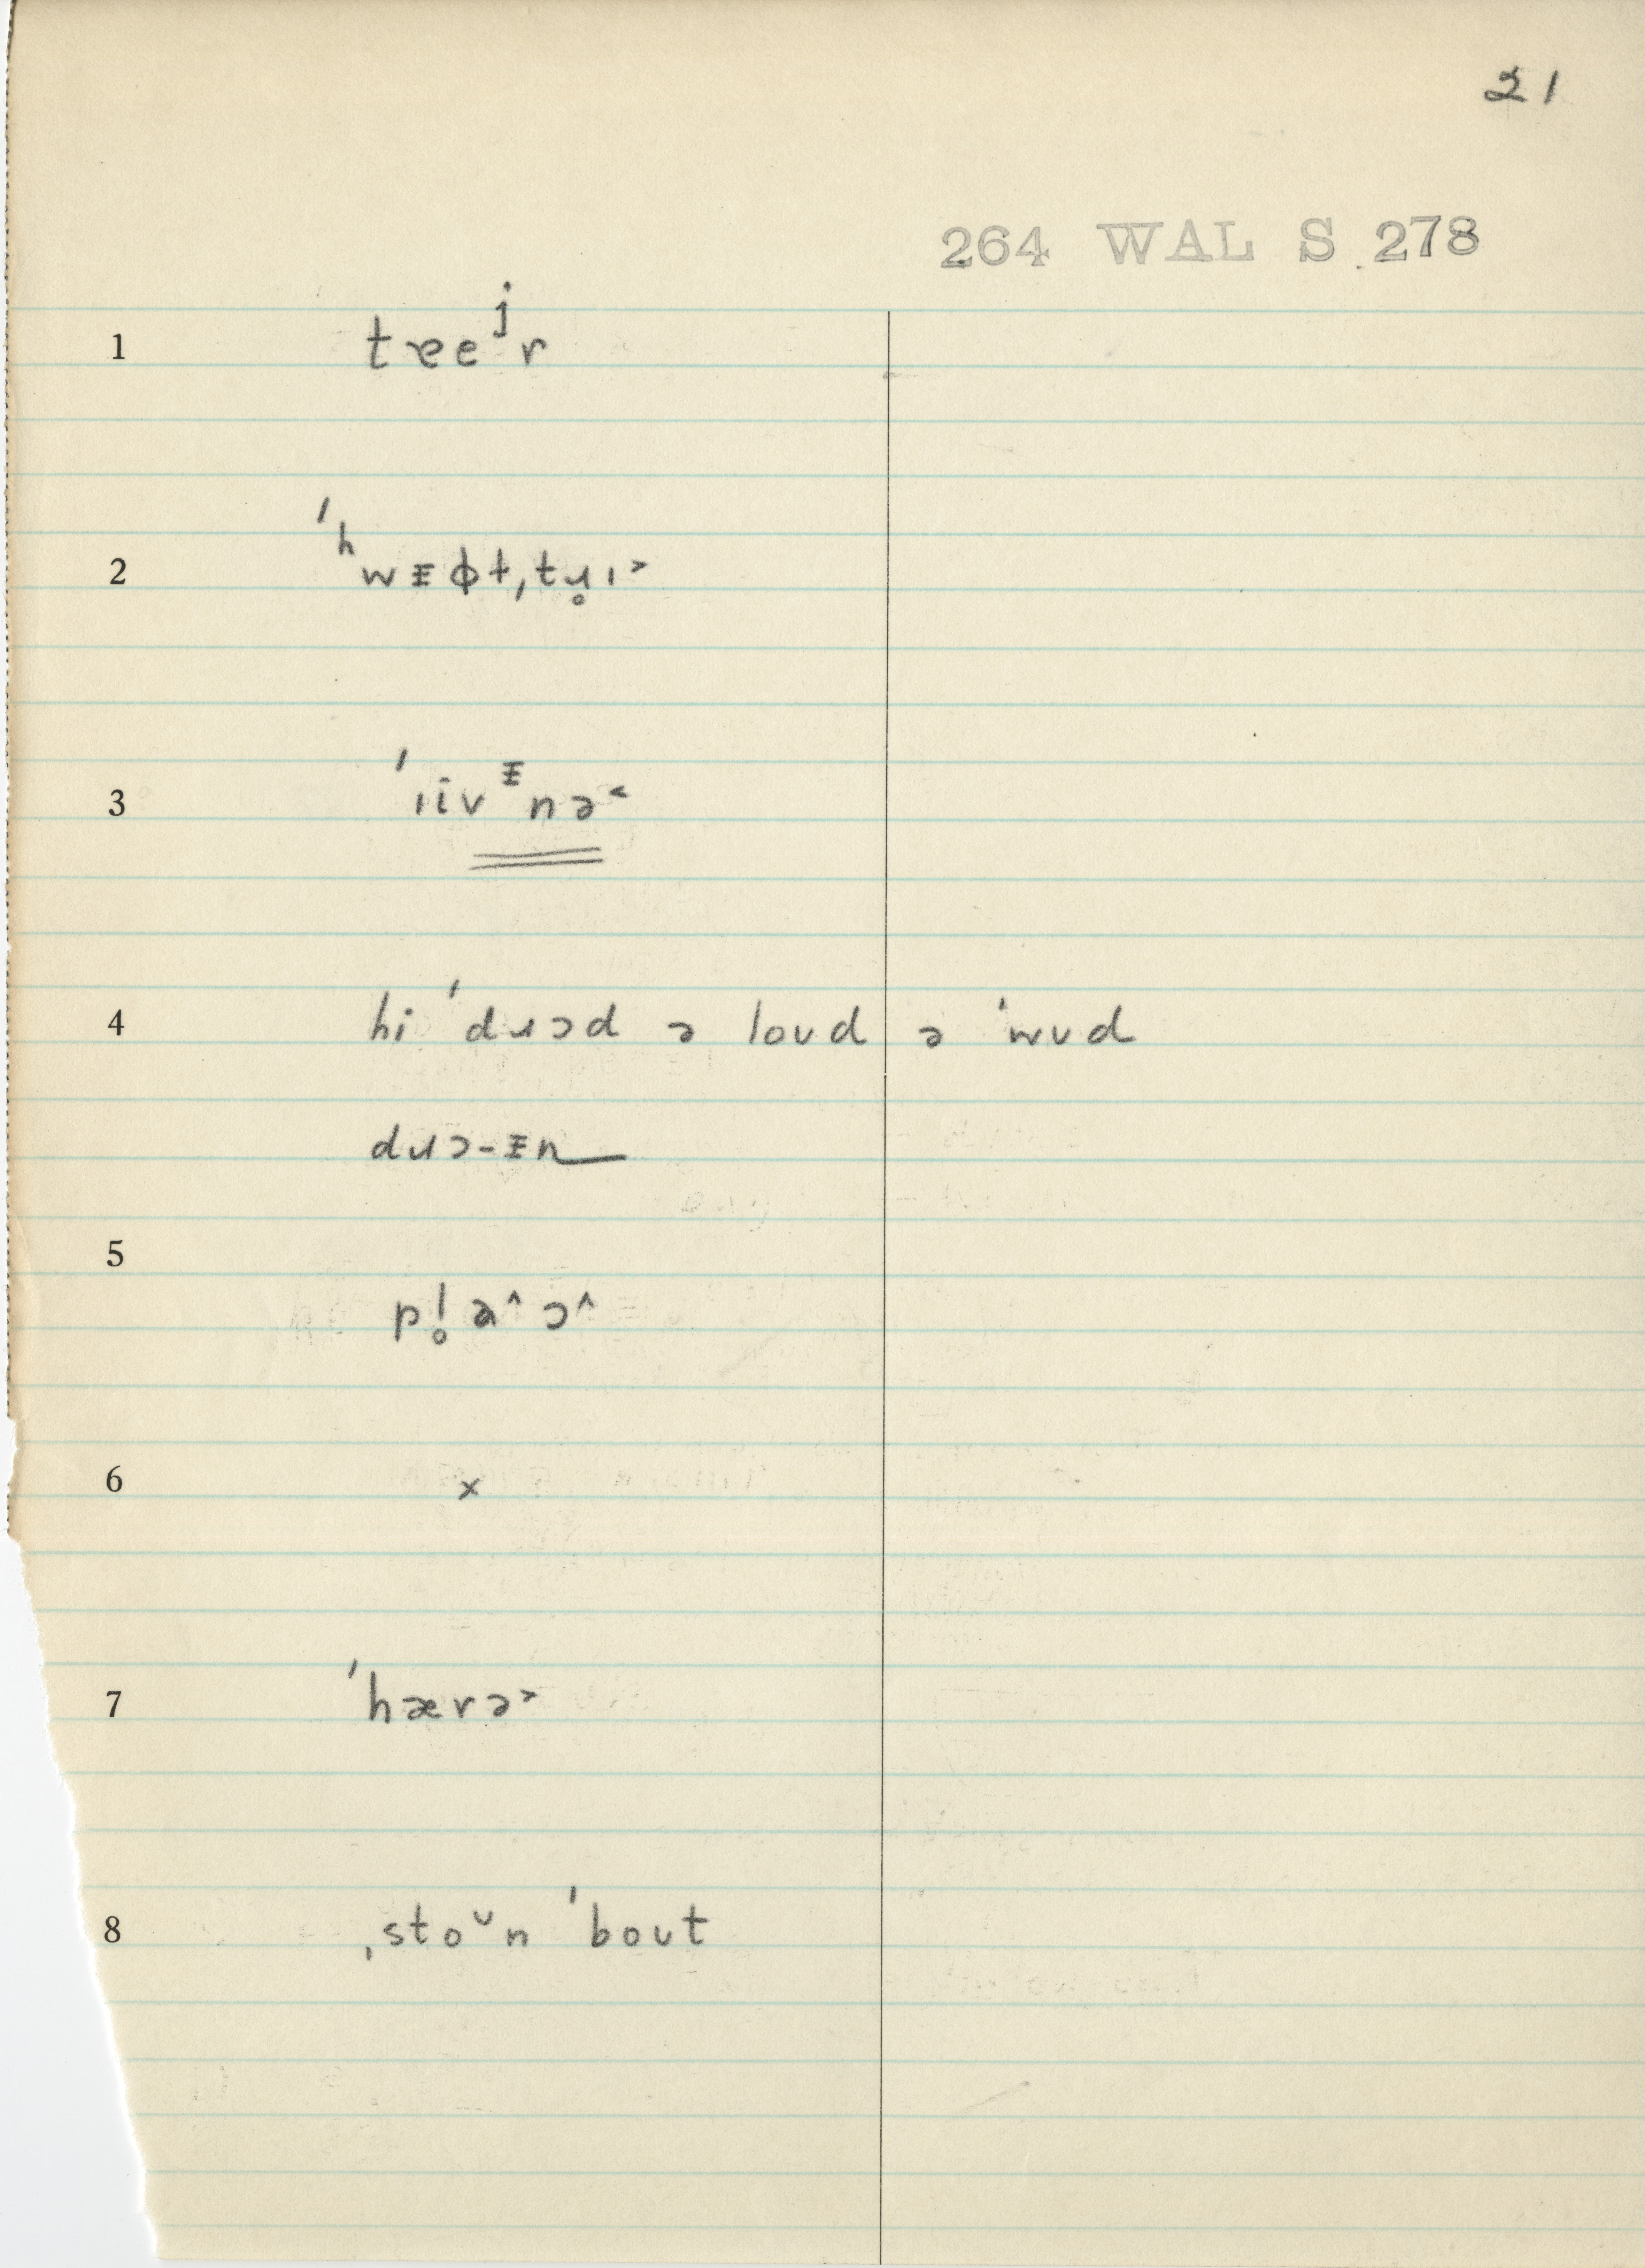 21
264 WAL S 278
1 tɐeʲr
2 ˈʰwᵻɸt,tɹ̥ɪ˃
3 ˈɪivᵻnə˂
4 hi ˈdɹɔd ə loʊd ə ˈwʊd
dɹɔ-ᵻn
5
pl̥a^ɔ^
6 x
7 ˈhærə˃
8 ˌstoᵘn ˈbout